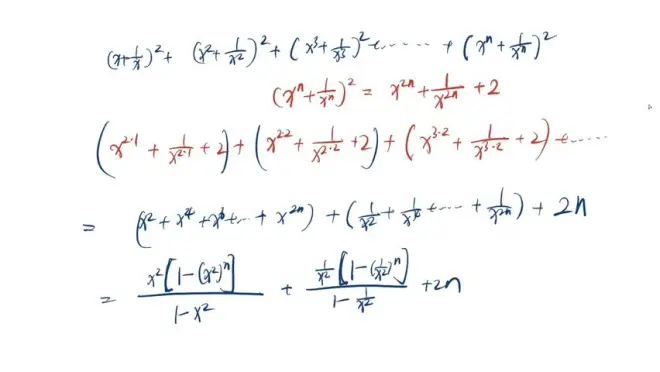 (x+1/x)² + (x²+1/x²)² + (x³+1/x³)² + ...... + (xⁿ+1/xⁿ)²
(xⁿ+1/xⁿ)² = x²ⁿ + 1/x²ⁿ + 2
(x^{2·1} + 1/x^{2·1} + 2) + (x^{2·2} + 1/x^{2·2} + 2) + (x^{3·2} + 1/x^{3·2} + 2) + ......
= (x² + x⁴ + x⁶ + ... + x²ⁿ) + (1/x² + 1/x⁴ + ... + 1/x²ⁿ) + 2n
= x²[1-(x²)ⁿ]/(1-x²) + 1/x²[1-(1/x²)ⁿ]/(1-1/x²) + 2n